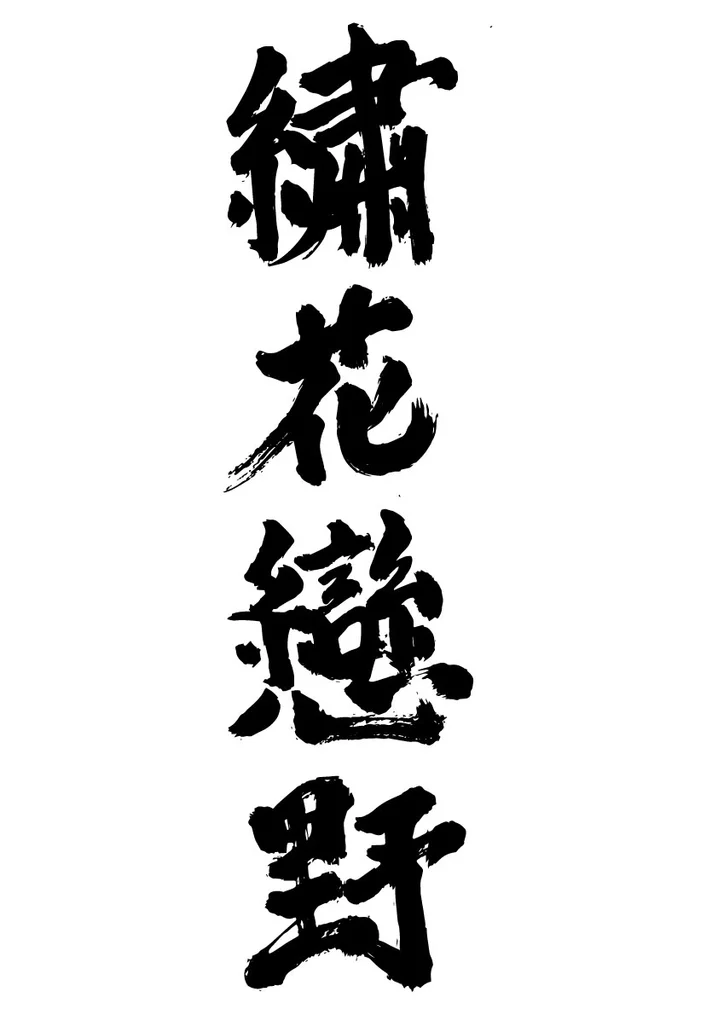 繡花戀野